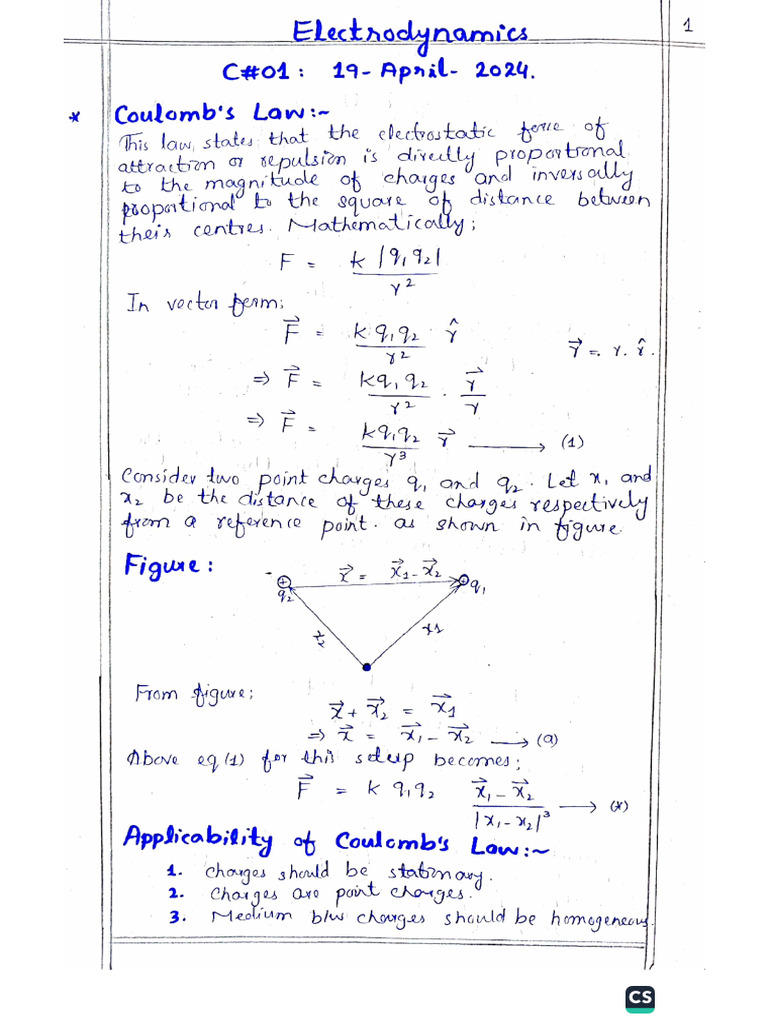 Electrodynamics
1
C#01: 19-April-2024.
* Coulomb's Law:~
This law, states that the electrostatic force of
attraction or repulsion is direclly proportional
to the magnitude of charges and inversally
proportional to the square of distance between
their centres. Mathematically;
F = k |q₁q₂| / r²
In vector form;
F⃗ = k q₁q₂ / r² r̂    r⃗ = r. r̂.
⇒ F⃗ = kq₁q₂ / r² · r⃗ / r
⇒ F⃗ = kq₁q₂ / r³ r⃗ ⟶ (1)
Consider two point charges q₁ and q₂. Let x₁ and
x₂ be the distance of these charges respectively
from a reference point. as shown in figure.
Figure:
x⃗ = x⃗₁ - x⃗₂
q₂
q₁
x₂
x1
From figure;
x⃗ + x⃗₂ = x⃗1
⇒ x⃗ = x⃗₁ - x⃗₂ ⟶ (a)
Above eq(1) for this setup becomes;
F⃗ = k q₁q₂ x⃗₁ - x⃗₂ / |x₁ - x₂|³ ⟶ (*)
Applicability of Coulomb's Law:~
1. Charges should be stationary.
2. Charges are point charges.
3. Medium b/w charges should be homogeneous.
CS